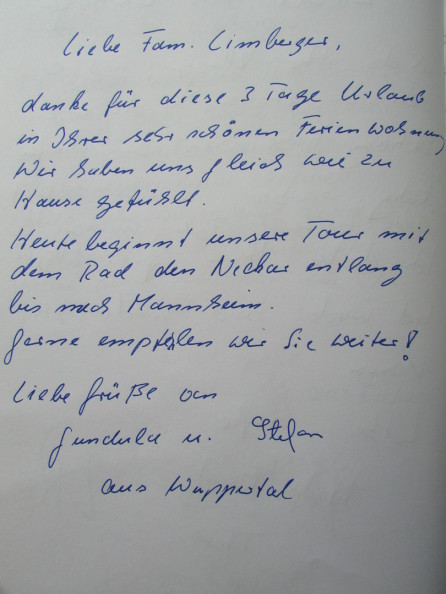 Liebe Fam. Limberger,
danke für diese 3 Tage Urlaub
in Ihrer sehr schönen Ferienwohnung
Wir haben uns gleich wie zu
Hause gefühlt.
Heute beginnt unsere Tour mit
dem Rad den Neckar entlang
bis nach Mannheim.
Gerne empfehlen wir Sie weiter!
Liebe Grüße von
Gundula u. Stefan
aus Wuppertal